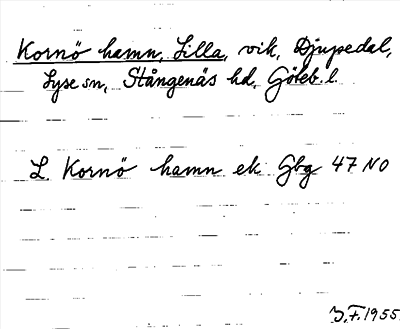 Kornö hamn, Lilla, vik, Djupedal,
Lyse sn, Stångenäs hd, Göteb. l.
L. Kornö hamn ek Gbg 47 NO
J.F. 1955